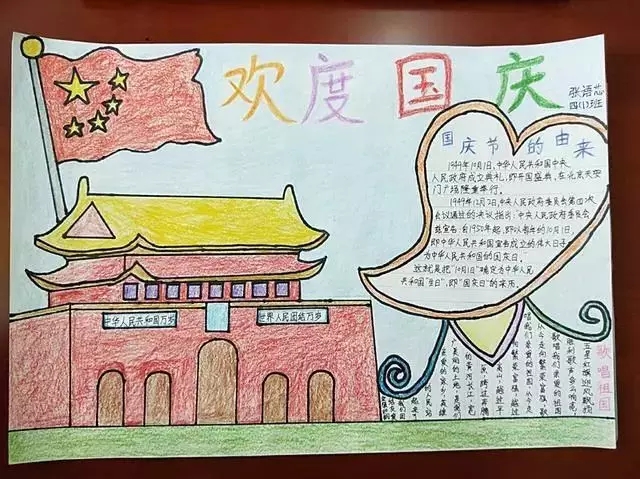 欢度国庆
张语芯
四(1)班
国庆节的由来
1949年10月1日,中华人民共和国中央
人民政府成立典礼,即开国盛典,在北京天安
门广场隆重举行。
1949年12月2日,中央人民政府委员会第四次
会议通过的决议指出:中央人民政府委员会
宣告:自1950年起,即以每年的10月1日,
即中华人民共和国宣告成立的伟大日子
为中华人民共和国的国庆日。
这就是把"10月1日"确定为中华人民
共和国"生日",即"国庆日"的来历。
中华人民共和国万岁
世界人民团结万岁
歌唱祖国
五星红旗迎风飘扬
胜利歌声多么响亮
歌唱我们亲爱的祖国
从今走向繁荣富强